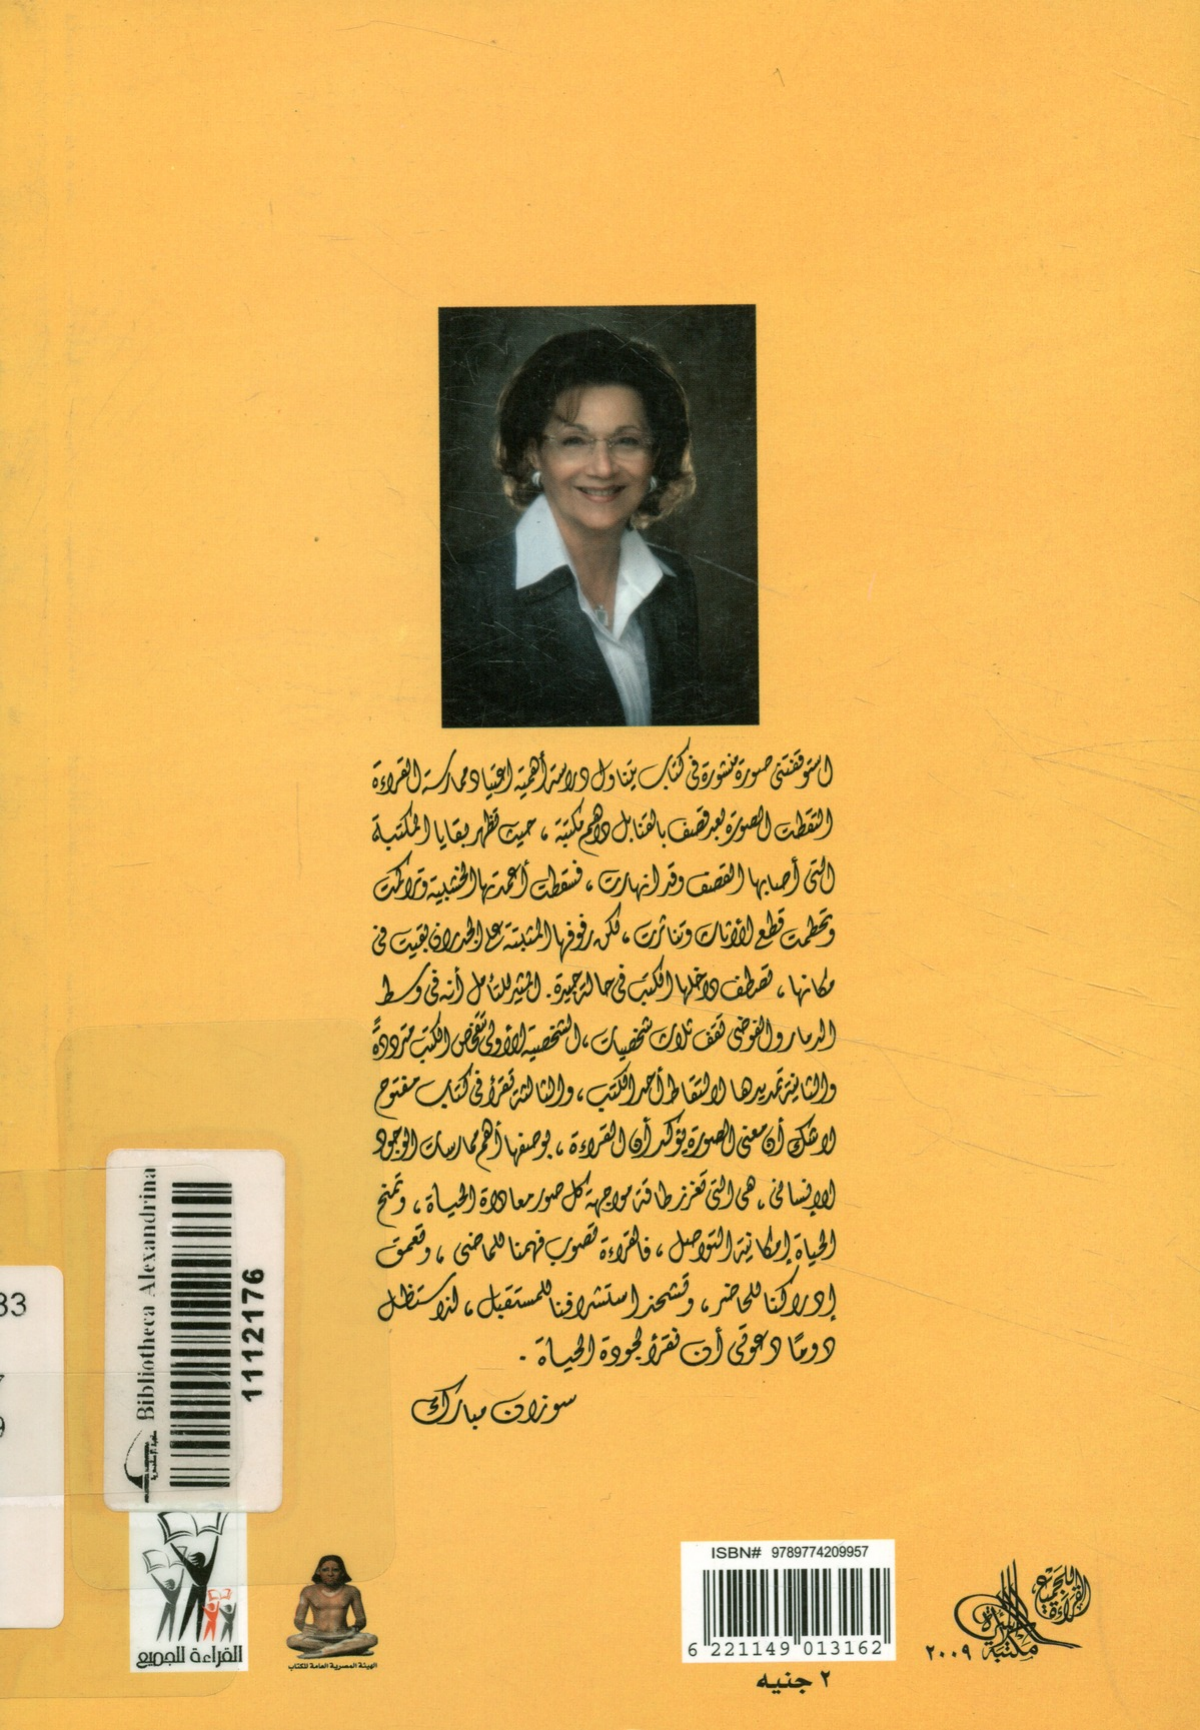 استوقفتنى صورة منشورة فى كتاب يتناول دراسة أهمية اعتياد ممارسة القراءة
التقطت الصورة بعد قصف بالقنابل داهم مكتبة ، حيث تظهر بقايا المكتبة
التى أصابها القصف وقد انهارت ، فسقطت أعمدتها الخشبية وتراكمت
وتحطمت قطع الأثاث وتناثرت ، لكن رفوفها المثبتة على الجدران بقيت فى
مكانها ، تصطف داخلها الكتب فى حالة جيدة . المثير للتأمل أنه فى وسط
الدمار والفوضى تقف ثلاث شخصيات ، الشخصية الأولى تتفحص الكتب مترددة
والثانية تمد يدها لالتقاط أحد الكتب ، والثالثة تقرأ فى كتاب مفتوح
لا شك أن معنى الصورة يؤكد أن القراءة ، بوصفها أهم ممارسات الوجود
الإنسانى ، هى التى تعزز طاقة مواجهة كل صور معاداة الحياة ، وتمنح
الحياة إمكانية التواصل ، فالقراءة تصوب فهمنا للماضى ، وتعمق
إدراكنا للحاضر ، وتشحذ استشرافنا للمستقبل ، لذا ستظل
دومًا دعوتى أن نقرأ لجودة الحياة .
سوزان مبارك
33
9
Bibliotheca Alexandrina
مكتبة الإسكندرية
1112176
القراءة للجميع
الهيئة المصرية العامة للكتاب
ISBN# 9789774209957
6 221149 013162
٢ جنيه
القراءة للجميع
مكتبة الأسرة
٢٠٠٩